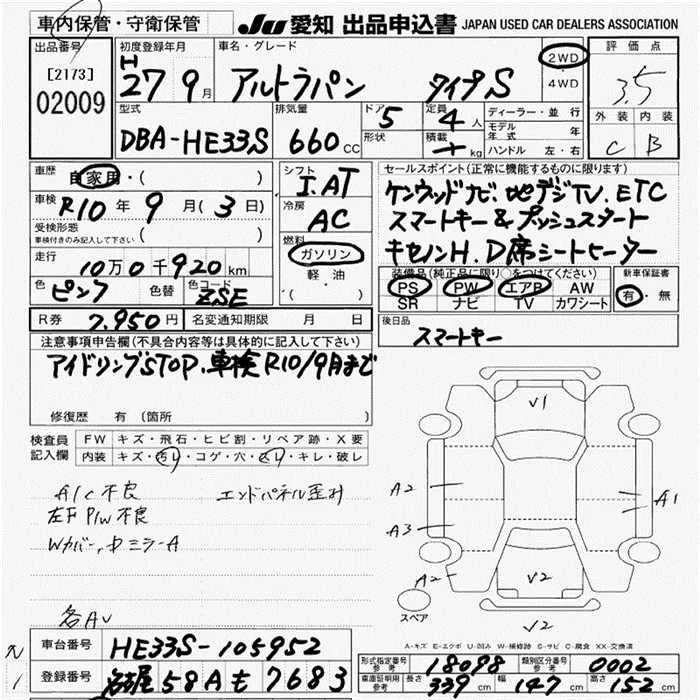 車内保管・守衛保管
JU 愛知 出品申込書 JAPAN USED CAR DEALERS ASSOCIATION
出品番号
[2173]
02009
初度登録年月
H
27 9 月
車名・グレード
アルトラパン タイプS
2WD
・
4WD
評価点
3.5
外装 内装
C B
型式
DBA-HE33S
排気量
660 CC
ドア 5
形状
定員 4 人
積載 kg
ディーラー・並行
モデル年式 年
ハンドル 左・右
車歴
自家用・( )
車検 R10 年 9 月 ( 3 日)
受検形態
車検付きのみ記入して下さい ( )
走行
10万0千920 km
色 ピンク 色替 色コード ZSE
シフト
I.AT
冷房
AC
燃料
ガソリン
軽・油
・( )
セールスポイント(正常に機能するものに限ります)
ケンウッドナビ.地デジTV.ETC
スマートキー&プッシュスタート
キセノンH.D席シートヒーター
装備品(純正品に限り○をつけてください)
PS PW エアB AW
SR ナビ TV カワシート
新車保証書
有・無
R券 7.950 円 名変通知期限 月 日
後日品
スマートキー
注意事項申告欄(不具合内容等は具体的に記入して下さい)
アイドリングSTOP.車検R10/9月まで
修復歴 有 (箇所 )
検査員記入欄
FW キズ・飛石・ヒビ割・リペア跡・X要
内装 キズ・汚レ・コゲ・穴・スレ・キレ・破レ
A/C不良 エンドパネル歪み
左F P/W不良
Wカバー,中ミラーA
各AU
V1
A2
A1
A3
A2
V2
V2
スペア
A-キズ E-エクボ U-凹み W-補修跡 S-サビ C-腐食 XX-交換済
車台番号 HE33S-105952
登録番号 58A も 7683
形式指定番号 参考 18098 類別区分番号 参考 0002
車庫証明用 参考 長さ 339 cm 幅 147 cm 高さ 152 cm